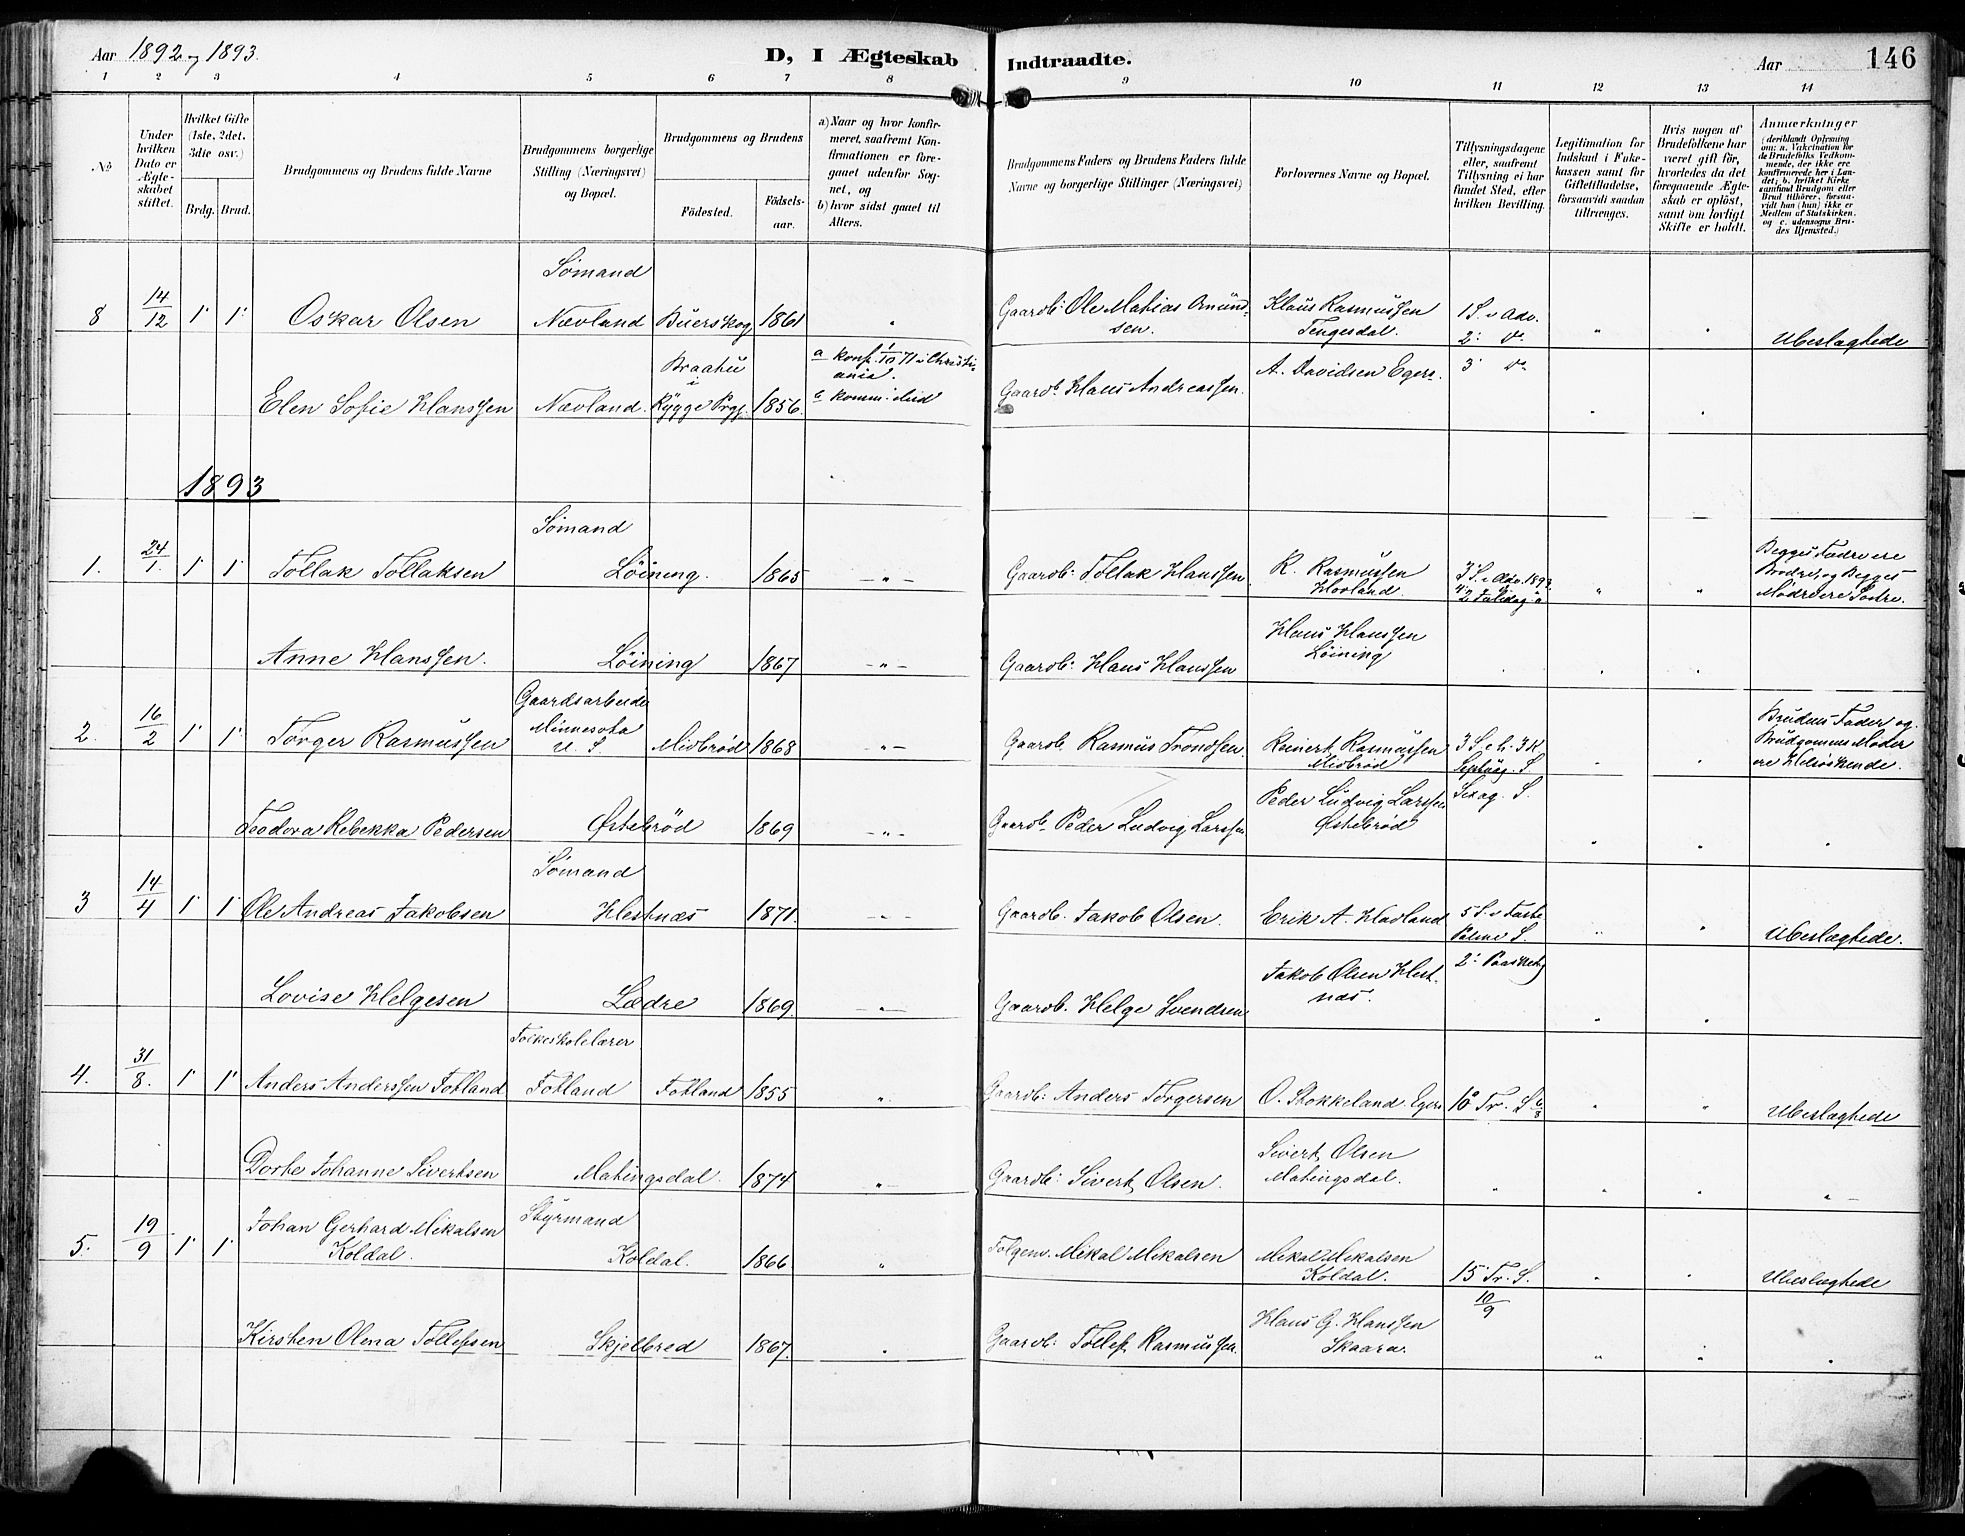 Aar 1892 og 1893.
D, I Ægteskab Indtraadte.
Aar 146
1 2 3 4 5 6 7 8 9 10 11 12 13 14
No
Under hvilken Dato er Ægteskabet stiftet.
Hvilket Gifte (1ste, 2det, 3die osv.)
Brdg. Brud.
Brudgommens og Brudens fulde Navne
Brudgommens borgerlige Stilling (Næringsvei) og Bopæl.
Brudgommens og Brudens
Födested. Födselsaar.
a) Naar og hvor konfirmeret, saafremt Konfirmationen er foregaaet udenfor Sognet, og
b) hvor sidst gaaet til Alters.
Brudgommens Faders og Brudens Faders fulde Navne og borgerlige Stillinger (Næringsvei)
Forlovernes Navne og Bopæl.
Tillysningsdagene eller, saafremt Tillysning ei har fundet Sted, efter hvilken Bevilling.
Legitimation for Indskud i Enkekassen samt for Giftetilladelse, forsaavidt saadan tiltrænges.
Hvis nogen af Brudefolkene har været gift før, hvorledes da det foregaaende Ægteskab er oplöst, samt om lovligt Skifte er holdt.
Anmærkninger (deriblandt Oplysning om: a. Vakcination for de Brudefolks Vedkommende, der ikke ere konfirmerede her i Landet; b. hvilket Kirkesamfund Brudgom eller Brud tilhörer, forsaavidt han (hun) ikke er Medlem af Statskirken, og c. udensogns Brudes Hjemsted.)
8 14/12 1 1 Oskar Olsen Sømand Nævland Buerskog 1861 " Gaardb: Ole Mathias Amundsen. Klaus Rasmussen Tengesdal. 1 S. i Adv. 2: " " Ubeslægtede
Elen Sofie Hanssen Nævland. Braatu i Rygge Prgj. 1856. a konf. 1/10 71 i Christiania. Gaardb. Hans Andreassen. A. Davidsen Egers. 3 "
1893
1. 24/1. 1 1 Tollak Tollaksen Sømand Löining. 1865 — " — Gaardb: Tollak Hanssen R. Rasmussen Hovland. " " Begges Fædre ere Brødre, og Begges Mødre ere Søstre.
Anne Hanssen. Löining 1867 — " — Gaardb: Hans Hanssen Hans Hanssen Löining
2. 16/2 1 1 Torger Rasmussen Gaardsarbeider Minnesota U. S. Midbrød 1868 — " — Gaardb. Rasmus Trondsen Reinert Rasmussen Midbrød 3 S. e. h. 3 K. Septuag. S. " " Brudens Fader og Brudgommens Moder ere Helsøskende.
Teodora Rebekka Pedersen Østebrød 1869 — " — Gaardb. Peder Ludvig Larssen Peder Ludvig Larssen Østebrød Sexag. S.
3 14/4 1 1 Ole Andreas Jakobsen Sømand Hestnæs 1871. — " — Gaardb. Jakob Olsen. Erik A. Havland 5 S. i Faste Palme S. " " Ubeslægtede.
Lovise Helgesen Lædre 1869. — " — Gaardb. Helge Svendsen Jakob Olsen Hestnæs. 2: Paaskedg
4. 31/8. 1 1 Anders Anderssen Fotland Folkeskolelærer Fotland Fotland 1855 " Gaardb: Anders Torgersen O. Stokkeland Egers 10 Tr. S. 6/8 " " Ubeslægtede
Dorte Johanne Sivertsen Matingsdal. 1874 " Gaardb: Sivert Olsen. Sivert Olsen Matingsdal. " " " "
5. 19/9 1 1 Johan Gerhard Mikalsen Koldal. Styrmand Koldal. 1866 " Mikal Mikalsen Mikal Mikalsen Koldal. 15 Tr. S. 10/9 " " Ubeslægtede
Kirsten Olena Tollefsen Skjelbred 1867. " Gaardb: Tollef Rasmussen. Hans G. Hanssen Skaara. " " "